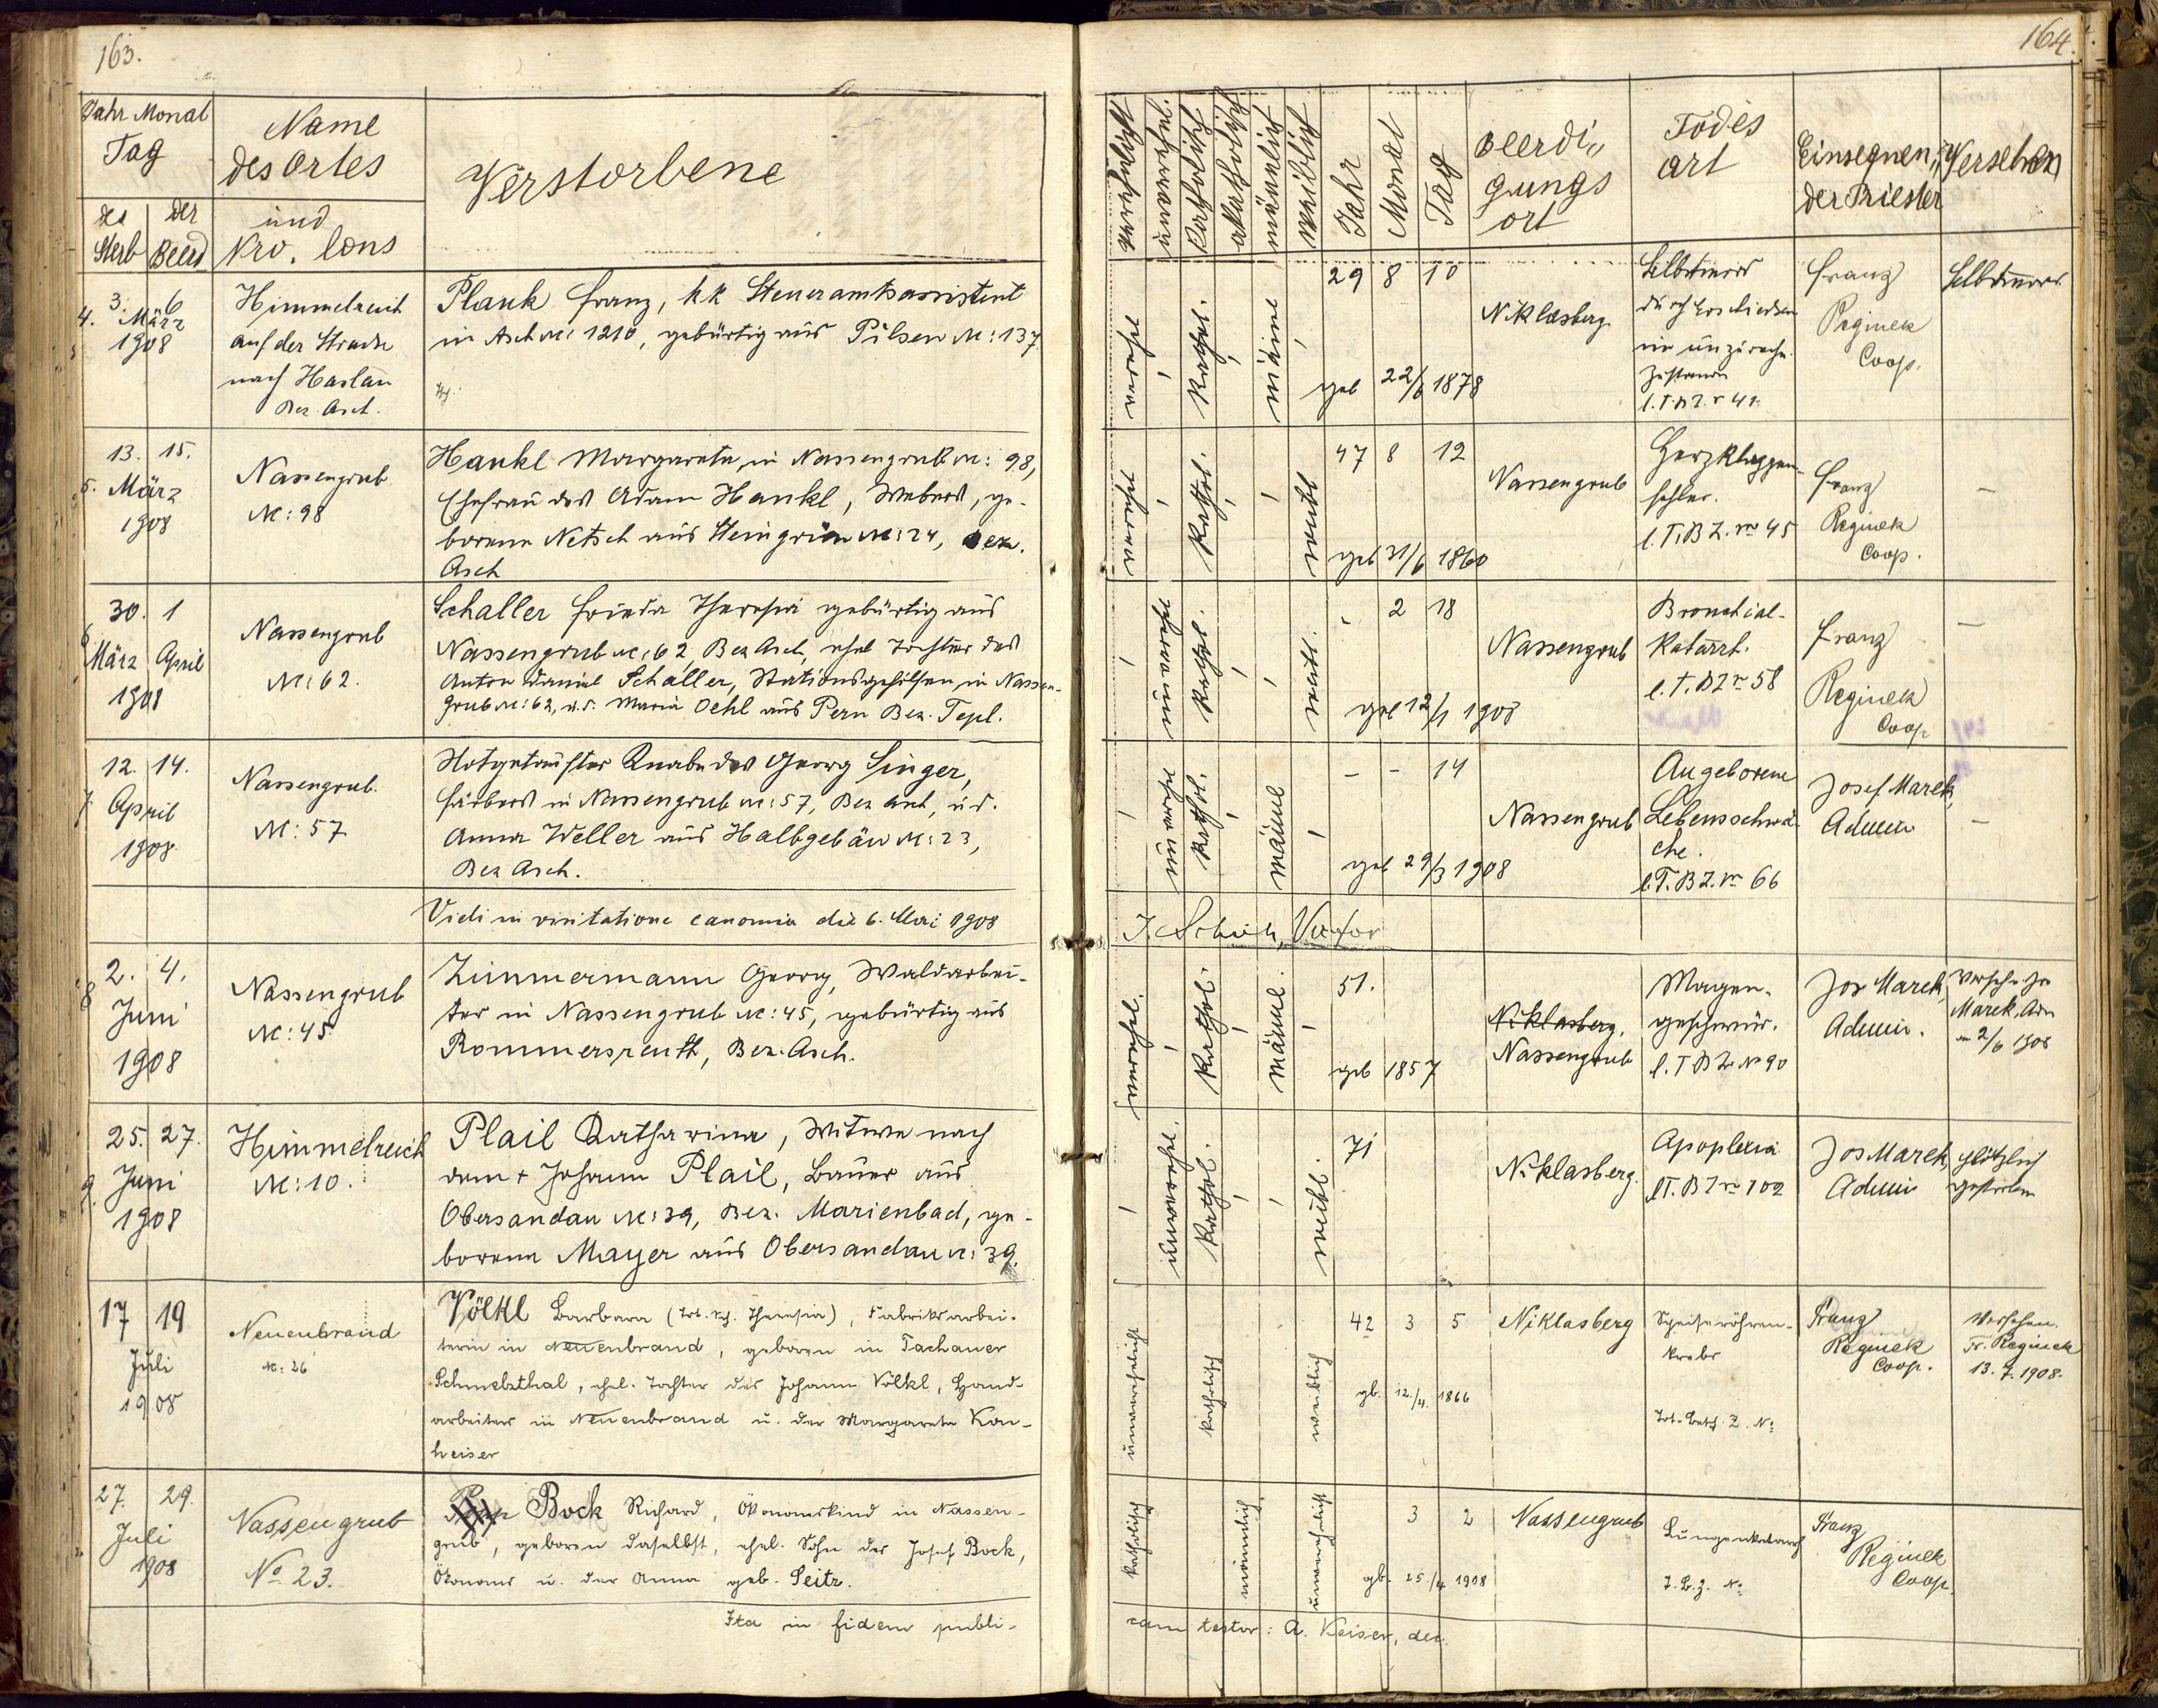 163.
Jahr Monat
Tag
des
Sterb
der
Beerd
Name
des Ortes
und
Nro. Cons
Verstorbene
4.
3. 6
März
1908
Himmelreich
auf der Strasse
nach Haslau
Bez. Asch.
Plank Franz, kk Steueramtsassistent
in Asch N: 1210, gebürtig aus Pilsen N: 137.
5.
13. 15.
März
1908
Nassengrub
N: 98
Hankl Margareta, in Nassengrub N: 98,
Ehefrau des Adam Hankl, Webers, ge-
borene Netsch aus Steingrün N: 24, Bez.
Asch
6
30. 1
März April
1908
Nassengrub
N: 62.
Schaller Frieda Theresia gebürtig aus
Nassengrub N: 62, Bez Asch, ehel Tochter des
Anton Daniel Schaller, Stationsgehilfen in Nassen-
grub N: 62, u. d. Maria Oehl aus Pern Bez. Tepl.
7.
12. 14.
April
1908
Nassengrub.
N: 57
Notgetaufter Knabe des Georg Singer,
Färbers in Nassengrub N: 57, Bez Asch, u. d.
Anna Weller aus Halbgebäu N: 23,
Bez Asch.
Vidi in visitatione canonica die 6. Mai 1908
8
2. 4.
Juni
1908
Nassengrub
N: 45
Zimmermann Georg, Waldarbei-
ter in Nassengrub N: 45, gebürtig aus
Rommersreuth, Bez. Asch.
9.
25. 27.
Juni
1908
Himmelreich
N: 10.
Plail Katharina, Witwe nach
dem + Johann Plail, Bauer aus
Obersandau N: 39, Bez. Marienbad, ge-
borene Mayer aus Obersandau N: 39.
17 19
Juli
1908
Neuenbrand
N: 26
Völkl Barbara (Tot. Sch. Theresia), Fabriksarbei-
terin in Neuenbrand, geboren in Tachauer
Schmelzthal, ehel. Tochter des Johann Völkl, Hand-
arbeiter in Neuenbrand u. der Margareta Kon-
heiser
27. 29.
Juli
1908
Nassengrub
No 23.
Bock Richard, Ökonomskind in Nassen-
grub, geboren daselbst, ehel. Sohn des Josef Bock,
Ökonoms u. der Anna geb. Seitz.
Ita in fidem publi-
164.
verehelicht
unverehel.
katholisch
akatholisch
männlich
weiblich
Jahr
Monat
Tag
Beerdi,,
gungs
ort
Todes
art
Einsegnen,,
der Priester
Versehen
verehel
kathol.
männl
29 8 10
geb 22/6 1878
Niklasberg.
Selbstmord
durch Erschiessen
im unzurechn.
Zustande
l. T.B Z. N 41
Franz
Reginek
Coop.
Selbstmord
verehel
kathol.
weibl
47 8 12
geb 31/6 1860
Nassengrub
Herzklappen-
fehler.
l. T. B Z. No 45
Franz
Reginek
Coop.
—
unverehel
kathol.
weibl.
, 2 18
geb 12/1 1908
Nassengrub
Bronchial-
Katarrh.
l. T. B Z No 58
Franz
Reginek
Coop
—
unverehel
kathol.
männl
– – 14
geb 29/3 1908
Nassengrub
Angeborene
Lebensschwä-
che.
l. T. B Z. No 66
Josef Marek,
Admin
–
verehel.
kathol.
männl.
51.
geb 1857
Niklasberg.
Nassengrub
Magen-
geschwür.
l. T B Z No 90
Jos Marek,
Admin.
Marek, Adm
am 2/6 1908
unverehl.
kathol.
weibl.
71
Niklasberg.
Apoplexia
l T. B Z No 102
Jos Marek,
Admin
plötzlich
gestorben
unverehelicht
katholisch
weiblich
42 3 5
gb. 12./4. 1866
Niklasberg
Speiseröhren-
krebs
Franz
Reginek
Coop.
Versehen.
Fr. Reginek
13. 7. 1908.
katholisch
männlich
unverehelicht
3 2
gb. 25./4 1908
Nassengrub
Lungenkatarrh
T. B. Z. No
Franz
Reginek
Coop.
cam testor: A. Keiser, dec.